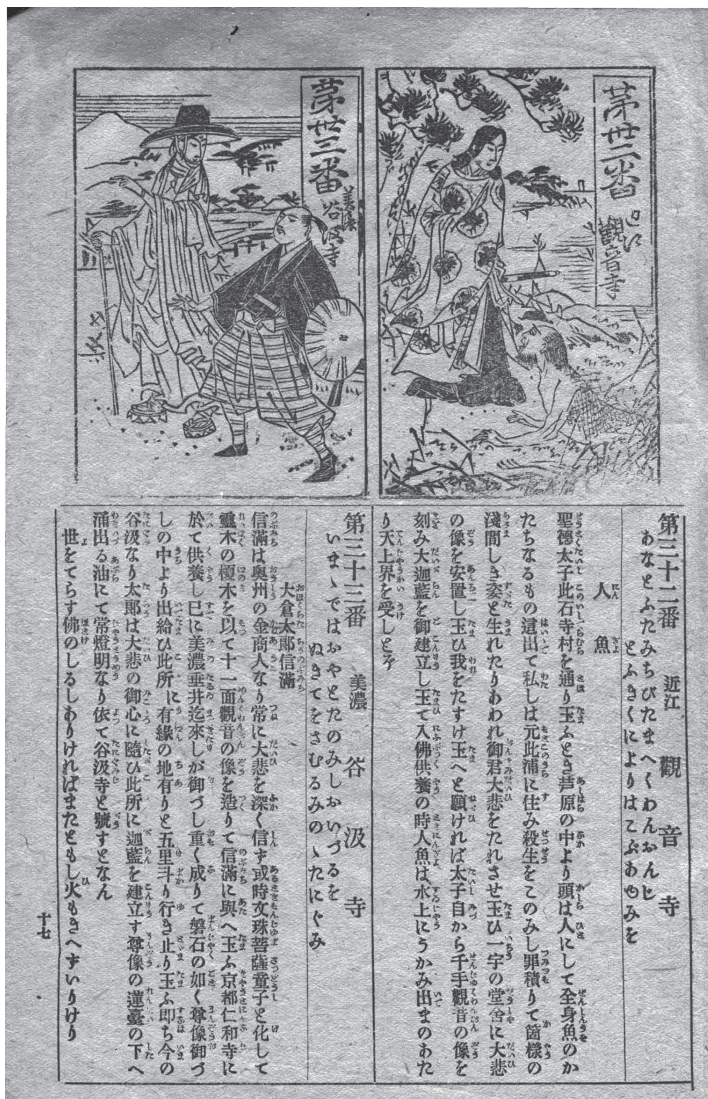 第卅二番
近江
観音寺
第卅三番
美濃
谷汲寺
第三十二番 近江 觀音寺
あなとふたみちびたまへくわんおんじ
とふきくによりはこぶあゆみを
人魚
聖德太子此石寺村を通り玉ふとき芦原の中より頭は人にして全身魚のか
たちなるもの這出で私しは元此浦に住み殺生をこのみし罪積りて箇樣の
淺間しき姿と生れたりあわれ御君大悲をたれさせ玉ひ一宇の堂舍に大悲
の像を安置し玉ひ我をたすけ玉へと願ければ太子自から千手觀音の像を
刻み大迦藍を御建立し玉て入佛供養の時人魚は水上にうかみ出まのあた
り天上界を受しとぞ
第三十三番 美濃 谷汲寺
いまゝではおやとたのみしおいづるを
ぬきてをさむるみのゝたにぐみ
大倉太郎信滿
信滿は奥州の金商人なり常に大悲を深く信ず或時文珠菩薩童子と化して
靈木の榎木を以て十一面觀音の像を造りて信滿に與へ玉ふ京都仁和寺に
於て供養し巳に美濃垂井迄來しが御づし重く成りて磐石の如く尊像御づ
しの中より出給ひ此所に有緣の地有りと五里斗り行き止り玉ふ即ち今の
谷汲なり太郎は大悲の御心に隨ひ此所に迦藍を建立す尊像の蓮臺の下へ
涌出る油にて常燈明なり依て谷汲寺と號すとなん
世をてらす佛のしるしありければまたともし火もきへずいりけり
十七